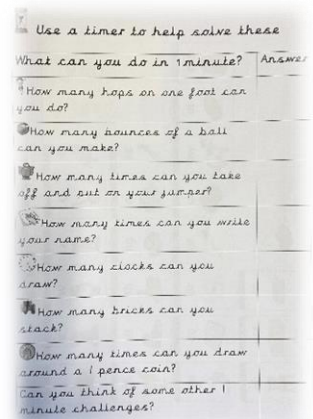 Use a timer to help solve these
What can you do in 1 minute? Answer
How many hops on one foot can
you do?
How many bounces of a ball
can you make?
How many times can you take
off and put on your jumper?
How many times can you write
your name?
How many clocks can you
draw?
How many bricks can you
stack?
How many times can you draw
around a 1 pence coin?
Can you think of some other 1
minute challenges?